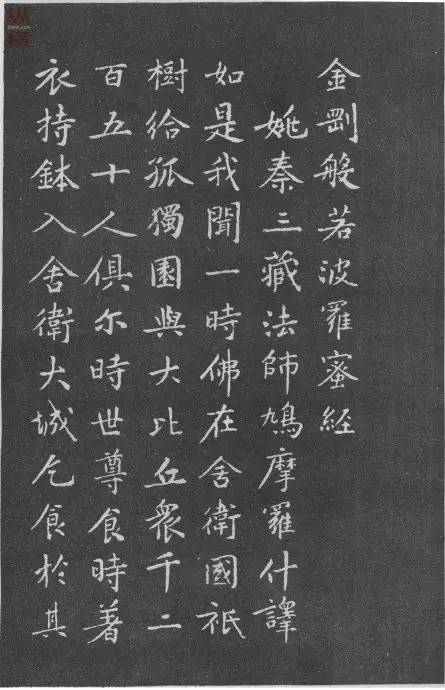 金剛般若波羅蜜經
姚秦三藏法師鳩摩羅什譯
如是我聞一時佛在舍衛國祇
樹給孤獨園與大比丘眾千二
百五十人俱尔時世尊食時著
衣持鉢入舍衛大城乞食於其